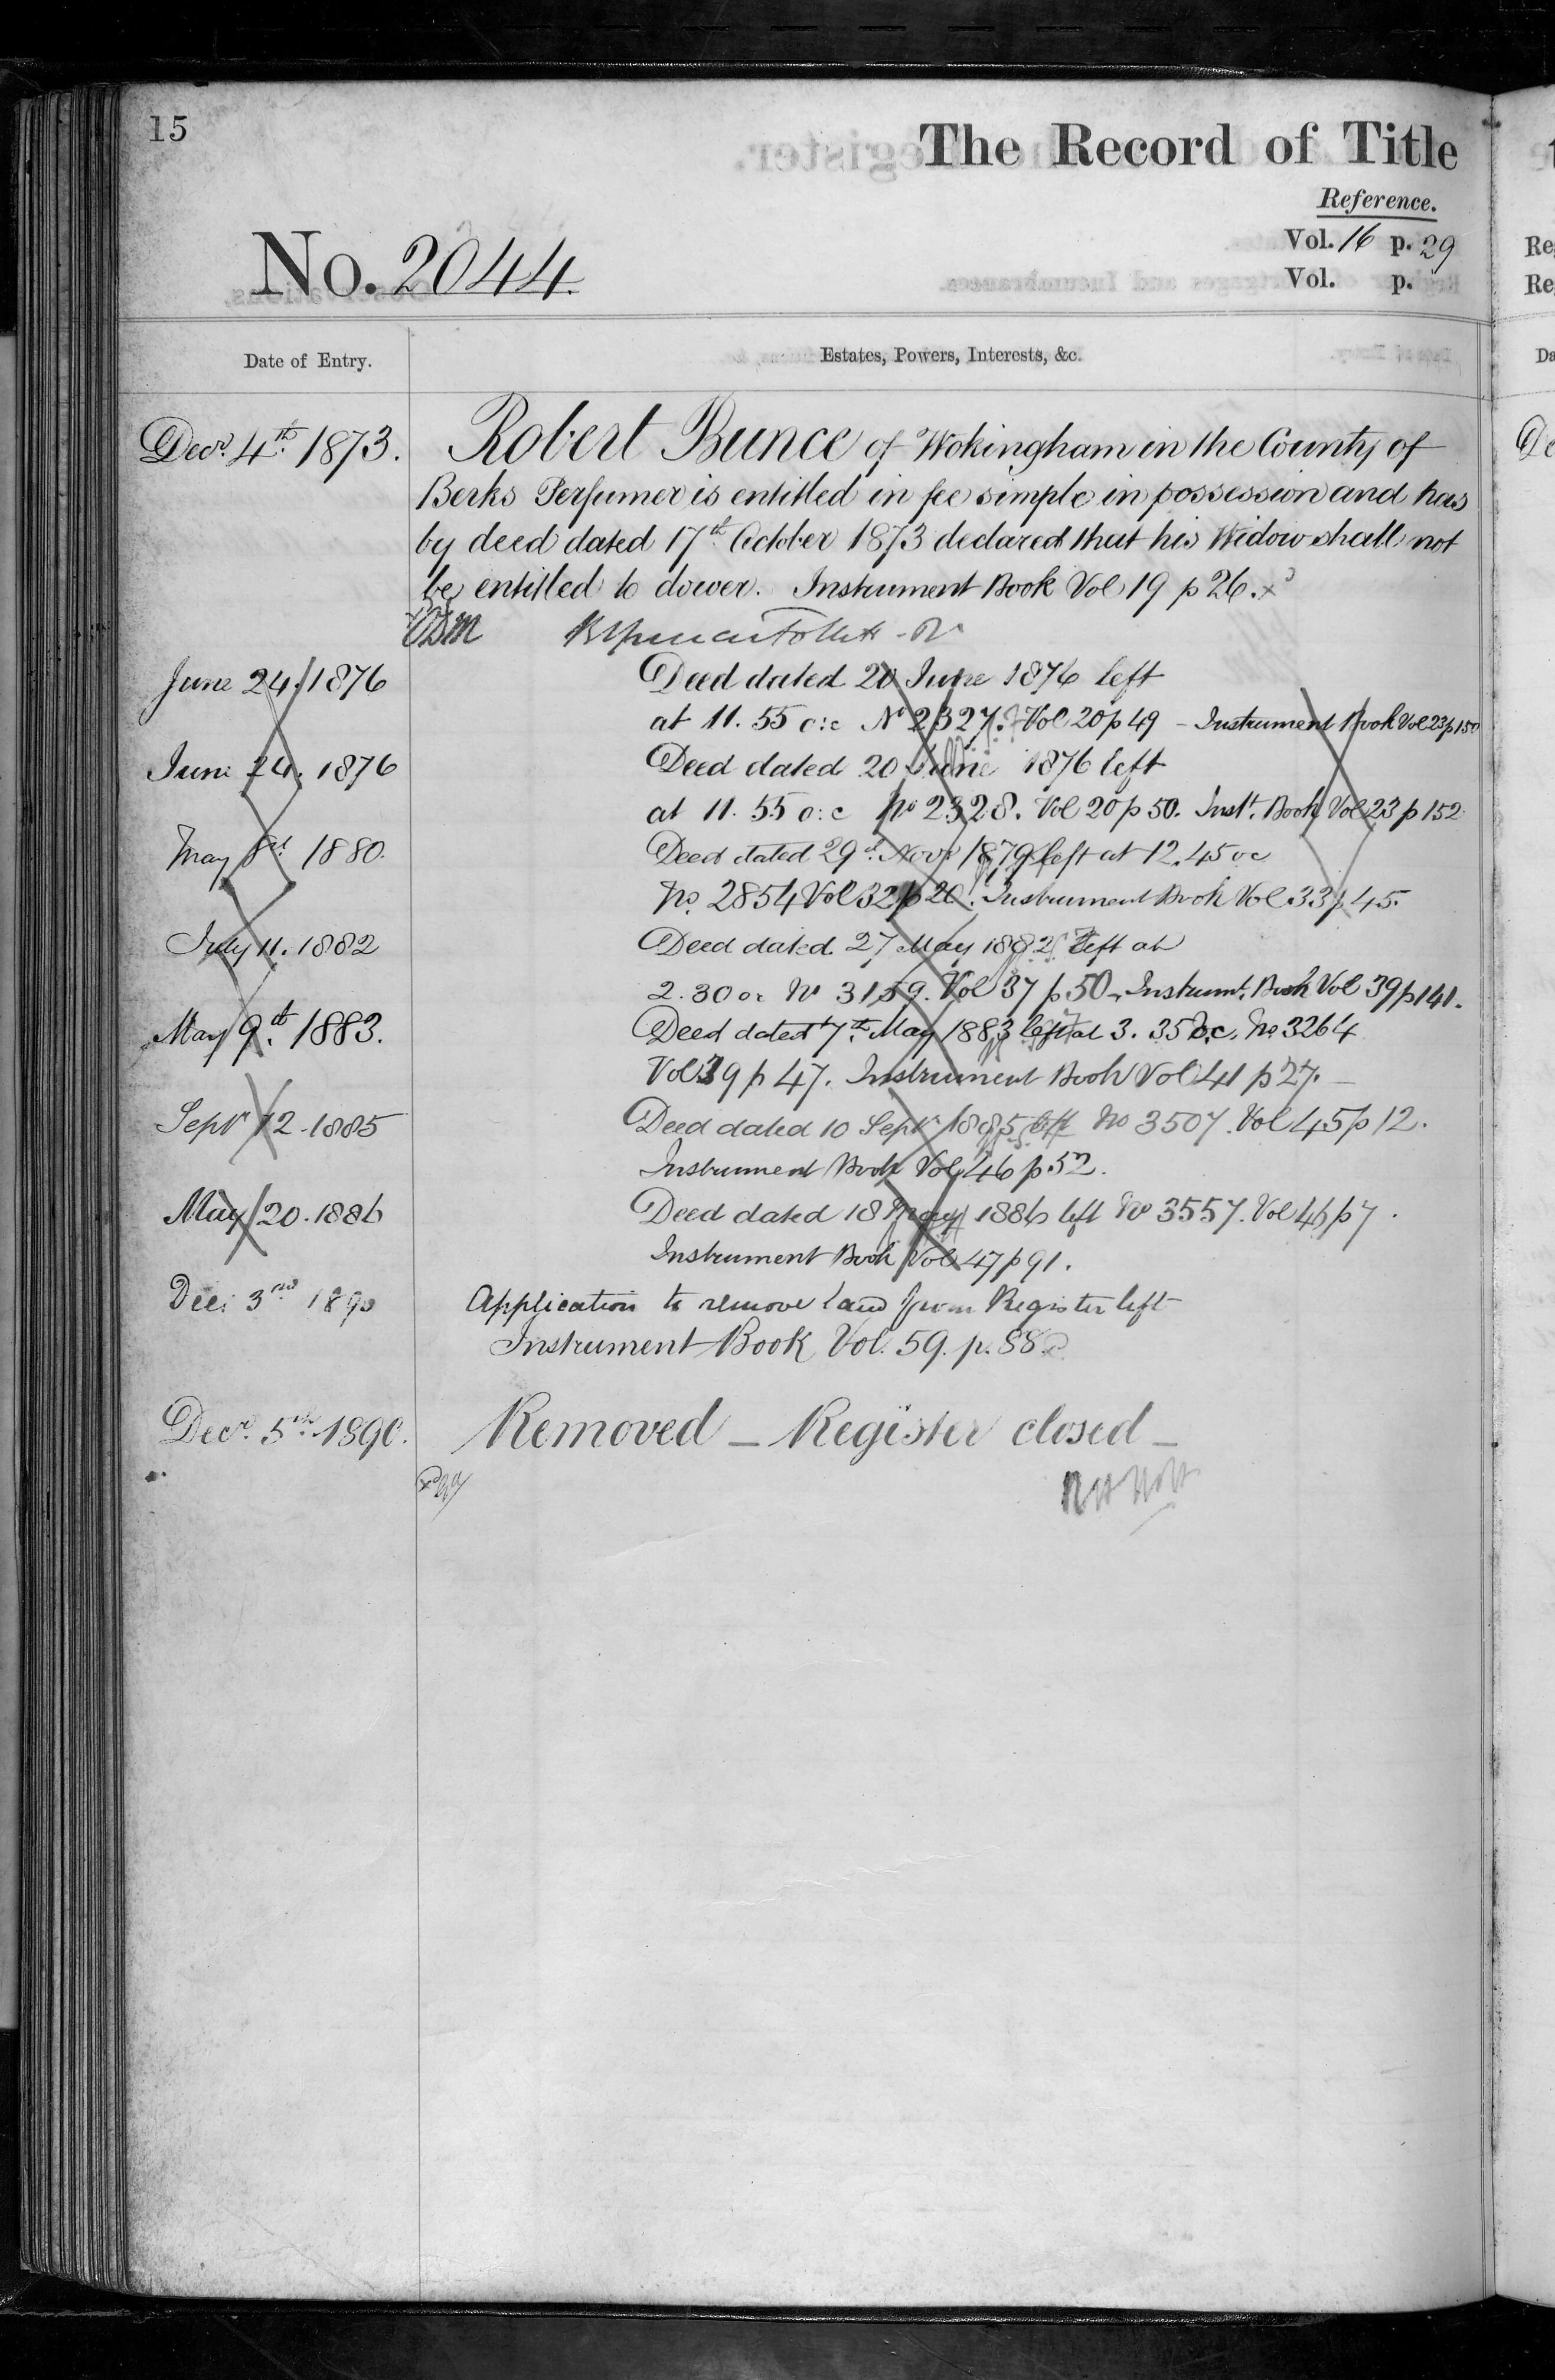 15
The Record of Title
Reference.
Vol. 16 p. 29
Vol. p.
No. 2044.
Date of Entry.
Estates, Powers, Interests, &c.
Decr. 4th. 1873.
Robert Bunce of Wokingham in the County of
Berks Perfumer is entitled in fee simple in possession and has
by deed dated 17th October 1873 declared that his Widow shall not
be entitled to dower. Instrument Book Vol 19 p 26.
June 24. 1876
Deed dated 20 June 1876 left
at 11. 55 o:c No 2327. Vol 20 p 49 - Instrument Book Vol 23 p 150
June 24. 1876
Deed dated 20 June 1876 left
at 11. 55 o:c No 2328. Vol 20 p 50. Instt. Book Vol 23 p 152
May 1880.
Deed dated 29th Novr 1879 left at 12.45 oc
No. 2854 Vol 32 p 20. Instrument Book Vol. 33 p 45.
July 11. 1882
Deed dated 27 May 1882 left at
2.30 oc No 3159. Vol 37 p 50 - Instrumt. Book Vol 39 p 141.
May 9th. 1883.
Deed dated 7th. May 1883 left at 3. 35 o.c. No. 3264
Vol 39 p 47. Instrument Book Vol 41 p 27. -
Septr 12. 1885
Deed dated 10 Septr 1885 left No 3507. Vol 45 p 12.
Instrument Book Vol 46 p. 52.
May 20. 1886
Deed dated 18 May 1886 left No 3557. Vol 46 p 7.
Instrument Book Vol 47 p 91.
Dec: 3rd 1890
Application to remove land from Register left
Instrument Book Vol. 59. p. 88
Decr. 5th. 1890.
Removed - Register closed -